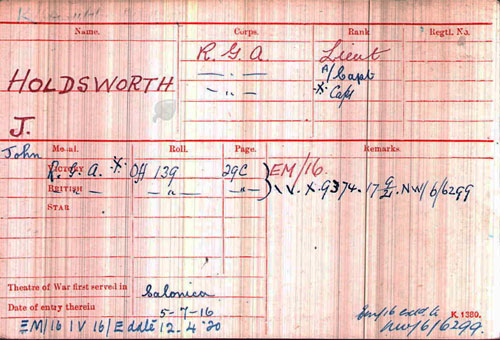 Name. Corps. Rank Regtl. No.
HOLDSWORTH R. G. A. Lieut
— " — A/Capt
J. — " — X Capt
John Medal. Roll. Page. Remarks.
VICTORY R. G. A. X Off 139 29C EM/16.
BRITISH — " — — " — — " — IV. X. 9374. 17 NW/6/6299
STAR
Theatre of War first served in Salonica
Date of entry therein 5-7-16
EM/16 IV 16/E date 12.4.20 K 1380.
NW/6/6299.